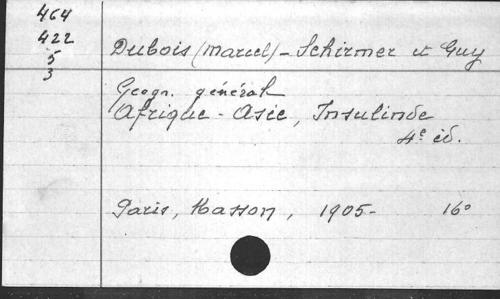 464
422
5
3
Dubois (Marcel) - Schirmer et Guy
Geogr. général
Afrique - Asie, Insulinde
4e éd.
Paris, Masson, 1905- 16o